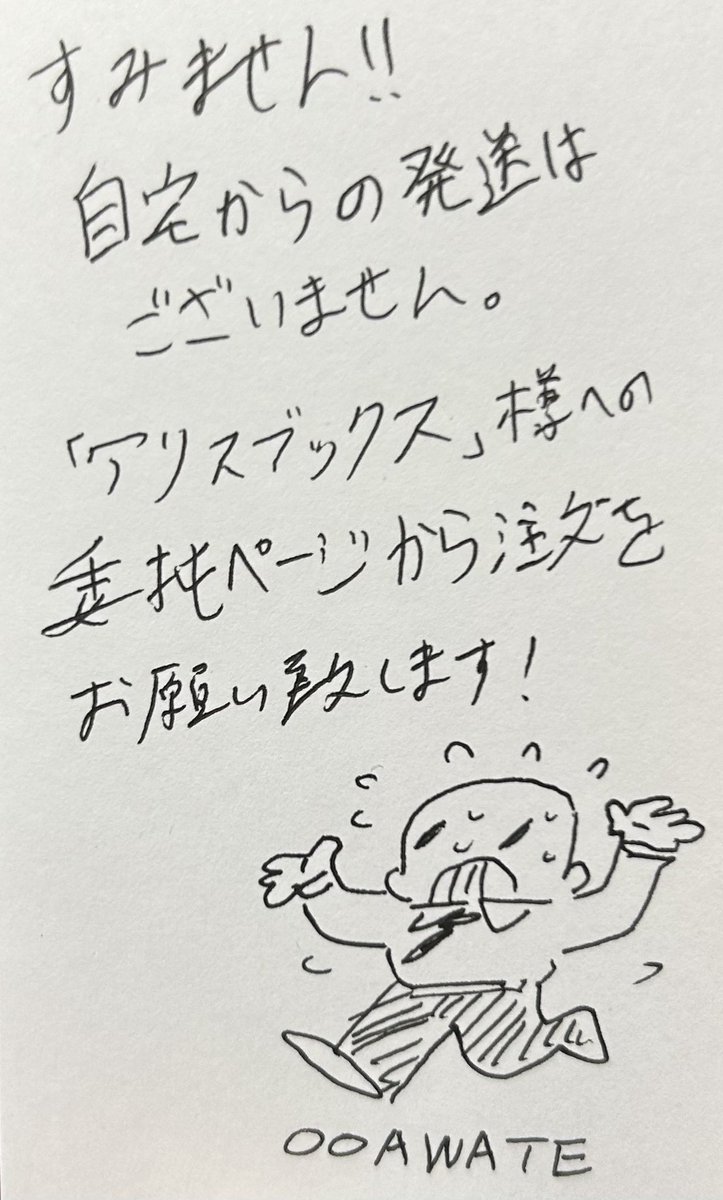 すみません!!
自宅からの発送は
ございません。
「アリスブックス」様への
委託ページから注文を
お願い致します!
OOAWATE